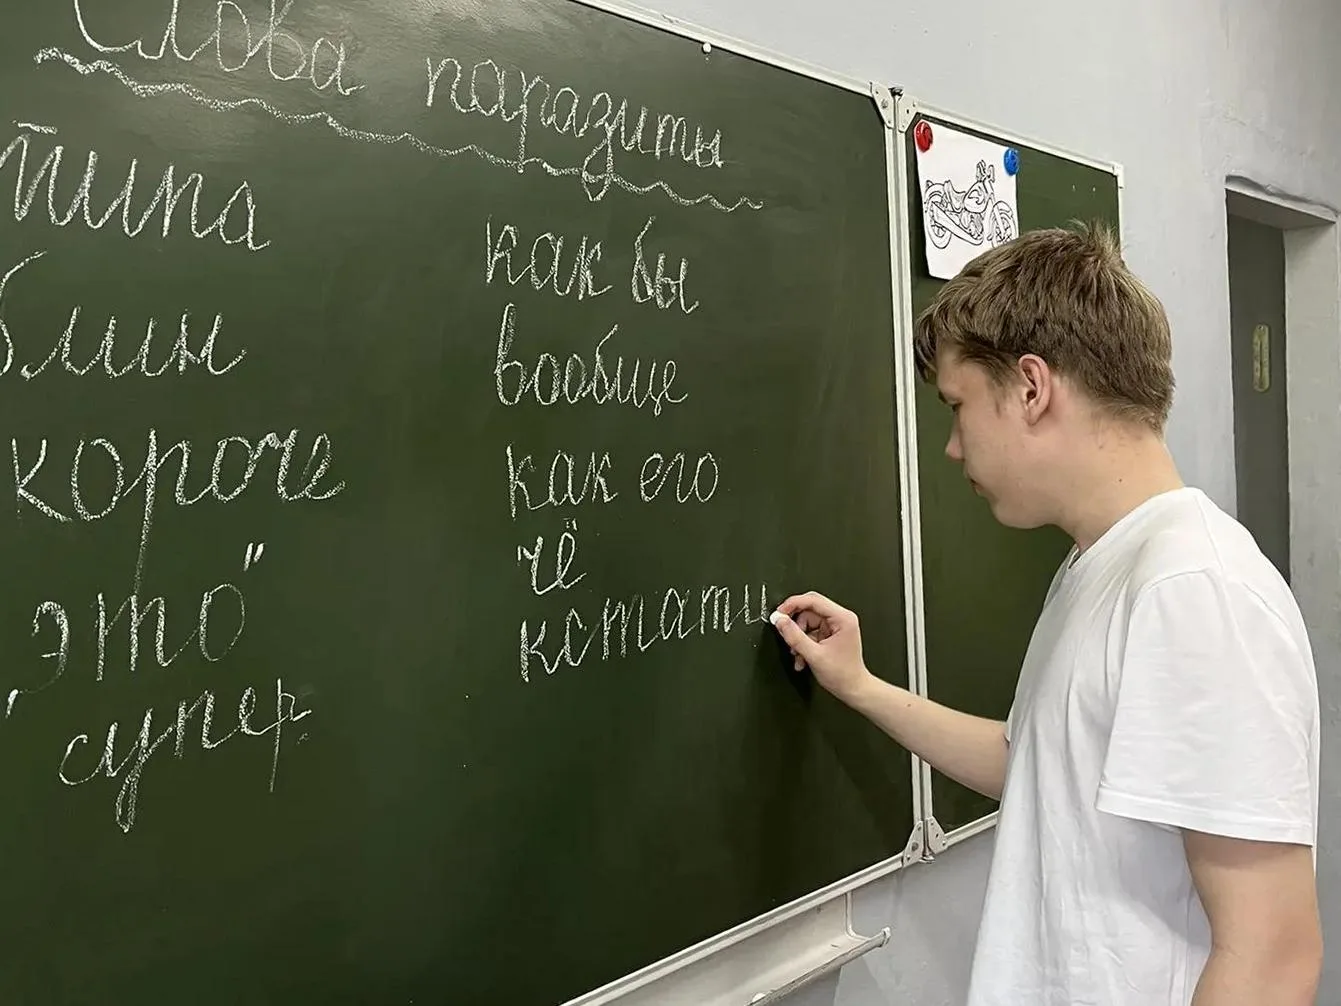 Слова паразиты
типа
блин
короче
"это"
супер
как бы
вообще
как его
чё
кстати